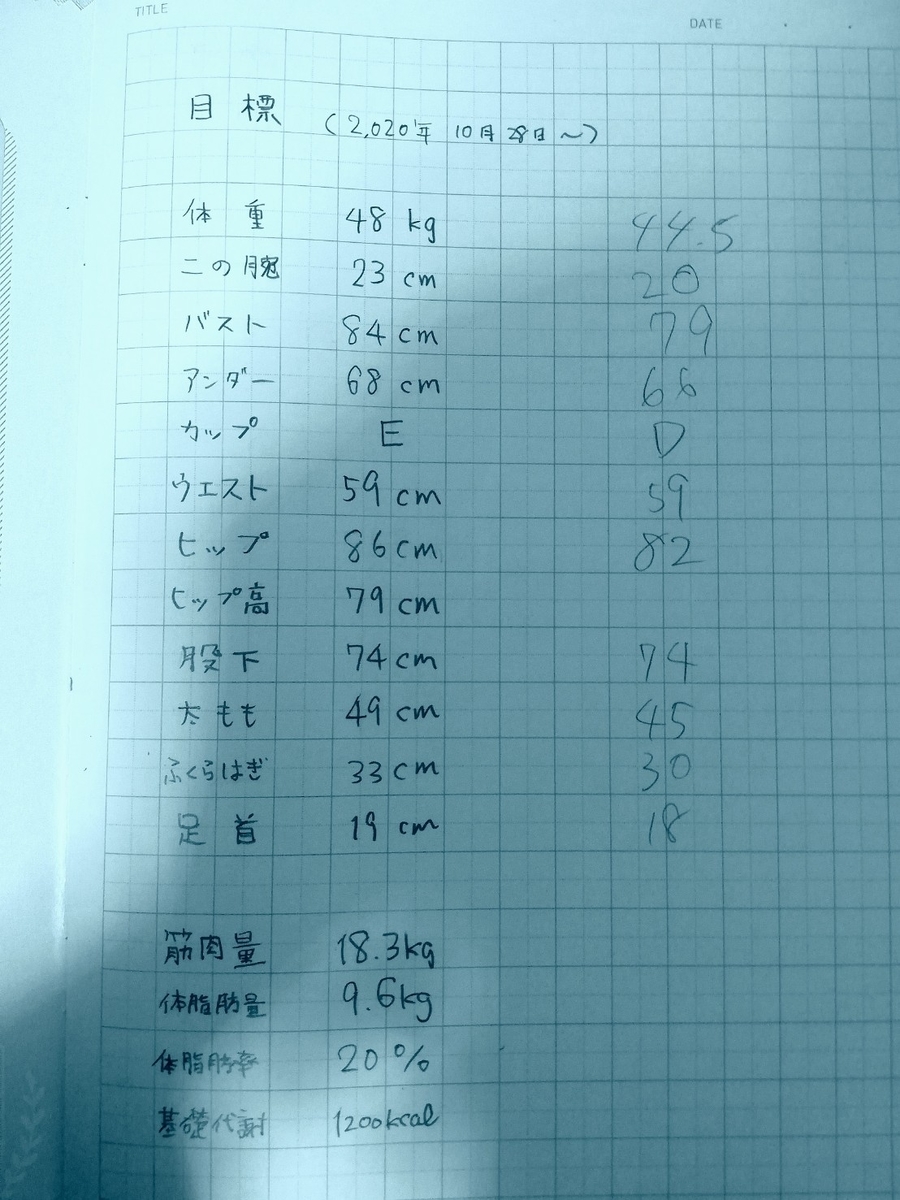 TITLE
DATE
目標 (2,020年 10月28日〜)
体重 48 kg 44.5
二の腕 23 cm 20
バスト 84 cm 79
アンダー 68 cm 66
カップ E D
ウエスト 59 cm 59
ヒップ 86 cm 82
ヒップ高 79 cm
股下 74 cm 74
太もも 49 cm 45
ふくらはぎ 33 cm 30
足首 19 cm 18
筋肉量 18.3kg
体脂肪量 9.6kg
体脂肪率 20%
基礎代謝 1200kcal